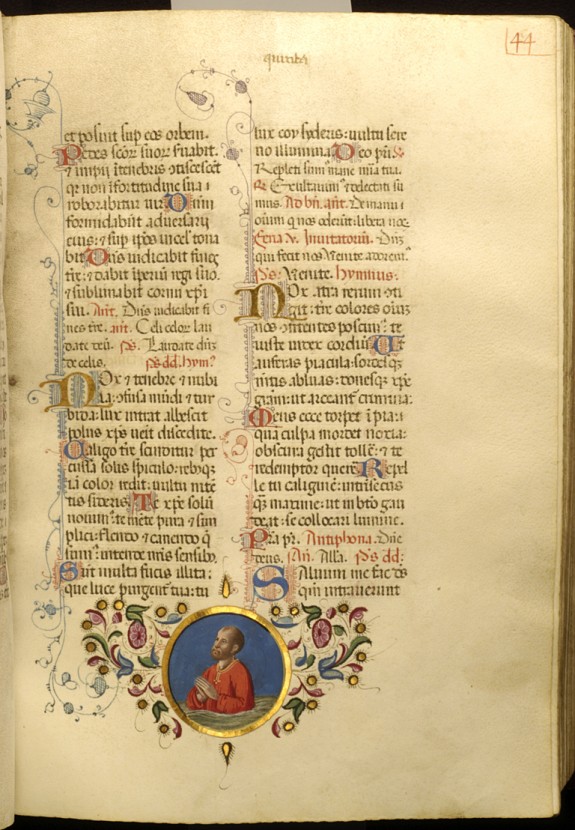 44
et posuit sup eos orbem.
Pedes scōr suor ſuabit.
⁊ impii ī tenebris ↄticescēt
qr non ī fortitudine sua ī
roborabitur vir. Dnm
formidabūt adversarij
eius: ⁊ sup ipos in cel' tona
bit. Dn̄s iudicabit fines
tr̄e: ⁊ dabit īperiū regi suo.
⁊ sublimabit cornu xp̄i
sui. Ant. Dn̄s iudicabit fi
nes tr̄e. ant. Celi celor lau
date deū. p̄s. Laudate dn̄z
de celis. p̄s. dd. hym⁹
Nox ⁊ tenebre ⁊ nubi
la: ↄfusa mūdi ⁊ tur
bida: lux intrat albescit
polus xp̄s ueīt discedite.
Caligo tr̄e scinditur per
cussa solis spiculo: rebq̨
iā color redit: uultu nite
tis sideris. Te xp̄e solū
nouim⁹: te mēte pura ⁊ sim
plici: flendo ⁊ canendo q̄
sum⁹: intende nr̄is sensibȝ.
Sūt multa fucis illita:
que luce purgent̄ tua: tu
lux eoy syderis: uultu sere
no illumina. Deo pr̄i.
Repleti sum⁹ mane mīa tua.
Exultauim⁹ ⁊ delectati su
mus. Ad bn̄. an̄t. De manu ī
oīum q nos oderūt: libera nos.
Feria v. Inuitatoriū. Dn̄z
qui fecit nos Venite adorem⁹.
p̄s. Venite. Hymnus.
Nox atra rerum ↄti
git: tr̄e colores oīuz
nos ↄfitentes poscim⁹: te
iuste iudex cordiū. Ut
auferas piacula: sordesq̨
mētis abluas: donesq̨ xp̄e
gr̄am: ut arceant̄ crimina:
Mens ecce torpet īpia:
quā culpa mordet noxia:
obscura gestit toll'e: ⁊ te
redemptor querē. Repel
le tu caliginē: intrīsecus
q̨ maxime: ut in bt̄o gau
deat: se collocari lumine.
Pr̄a pr̄. Antiphona. Dn̄e
deus. p̄s. dd:
Saluum me fac d̄s
qm̄ intrauerunt